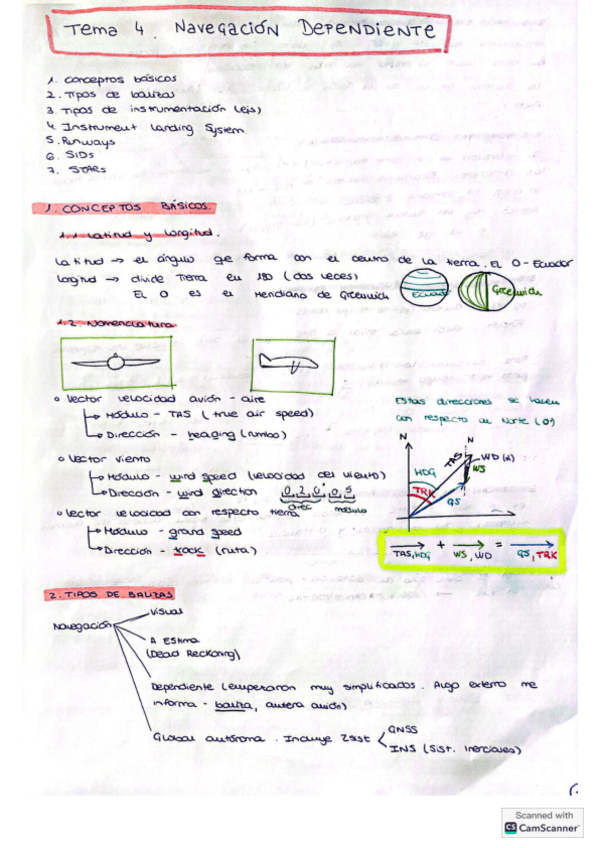 Tema 4. Navegación Dependiente
1. Conceptos básicos
2. Tipos de balizas
3. Tipos de instrumentación (ejs)
4. Instrument Landing System
5. Runways
6. SIDs
7. STARs
1. CONCEPTOS BÁSICOS.
1.1 Latitud y Longitud.
Latitud → el ángulo qe forma con el centro de la tierra. El 0 - Ecuador
Logitud → divide Tierra en 180 (dos veces)
El 0 es el Meridiano de Greenwich
Ecuador
Greenwich
1.2 Nomenclatura
Vector velocidad avión - aire
Módulo - TAS (true air speed)
Dirección - heading (rumbo)
Vector viento
Módulo - wind speed (velocidad del viento)
Dirección - wind direction 0,2,0,0,5
direc módulo
Vector velocidad con respecto tierra
Módulo - grand speed
Dirección - track (ruta)
Estas direcciones se hacen
con respecto al Norte (0º)
N N
TAS WD (α)
HDG WS
TRK
GS
TAS, HDG + WS, WD = GS, TRK
2. TIPOS DE BALIZAS
Navegación
Visual
A Estima
(Dead Reckoning)
Dependiente (empezaron muy simplificados. Algo externo me
informa - baliza, antera avión)
Global autónoma. Incluye 2 sist
GNSS
INS (Sist. Inerciales)
Scanned with
CS CamScanner